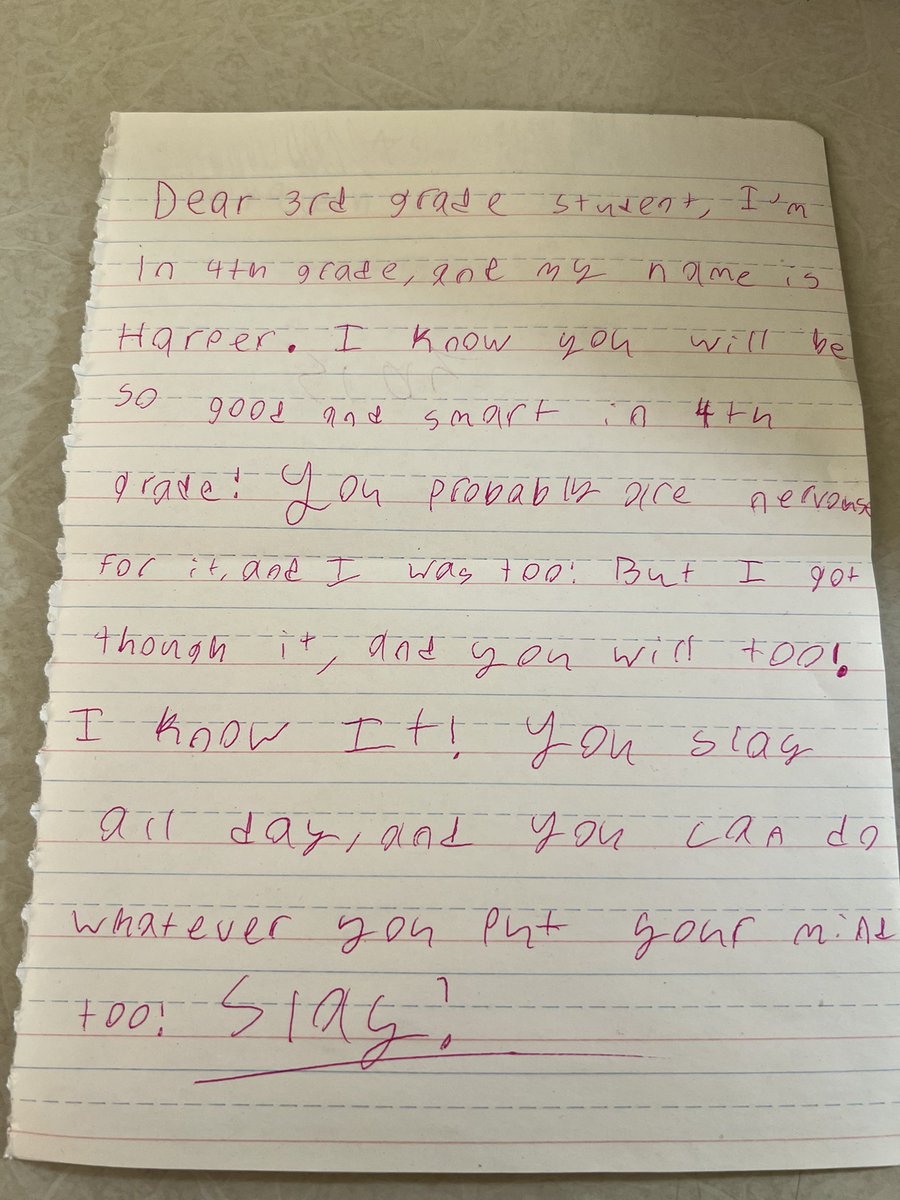 Dear 3rd grade student, I'm
In 4th grade, and my name is
Harper. I know you will be
so good and smart in 4th
grade! You probably are nervouse
for it, and I was too! But I got
though it, and you will too!
I know It! You slay
all day, and you can do
whatever you put your mind
too! Slay!